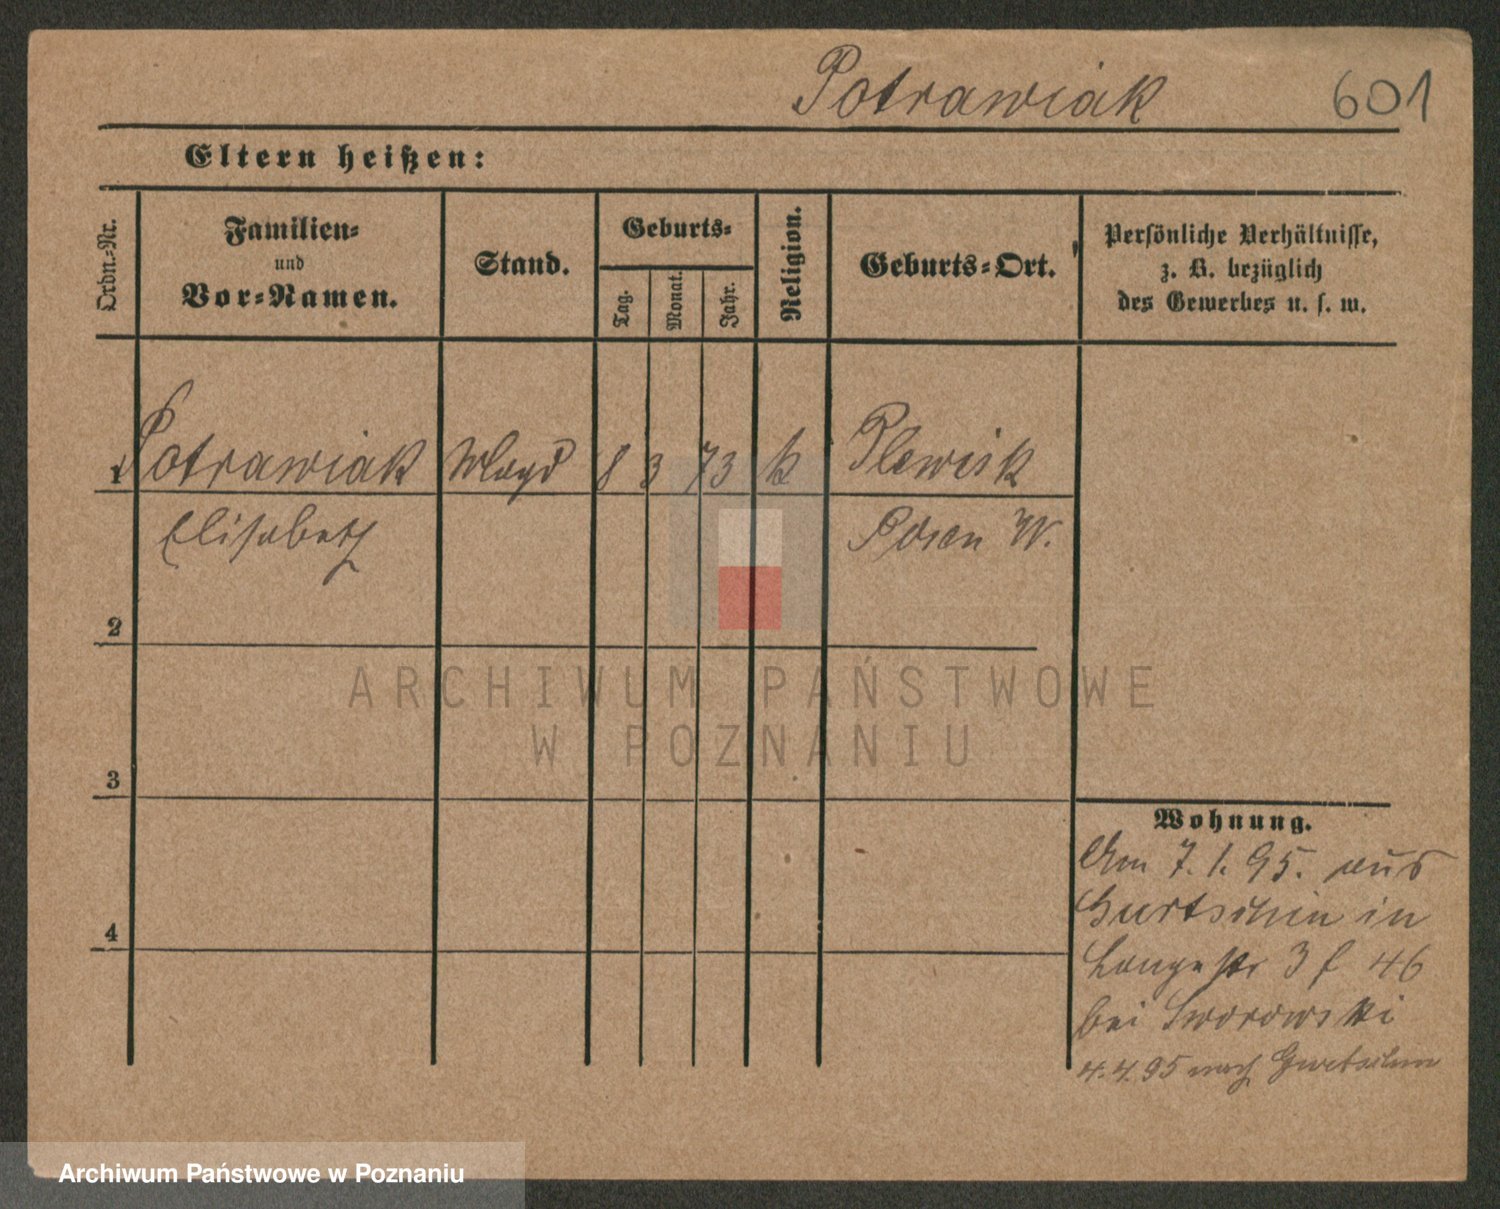 Potrawiak 601
Eltern heißen:
Ordn.-Nr.
Familien-
und
Vor-Namen.
Stand.
Geburts-
Tag.
Monat.
Jahr.
Religion.
Geburts-Ort.
Persönliche Verhältnisse,
z. B. bezüglich
des Gewerbes u. s. w.
1 Potrawiak Magd 8 3 73 k Plewisk
Elisabeth Posen W.
2
3
4
Wohnung.
Am 7.1.95. aus
Gurtschin in
Langestr 3 f 46
bei Sworowski
4.4.95 nach Gurtschin
ARCHIWUM PAŃSTWOWE
W POZNANIU
Archiwum Państwowe w Poznaniu